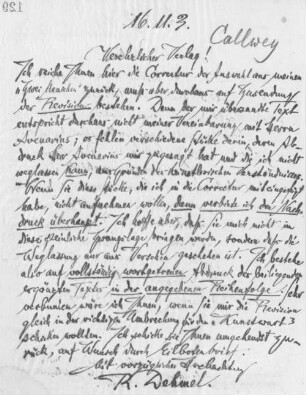 129
16.11.3.
Callwey
Verehrlicher Verlag!
Ich reiche Ihnen hier die Correctur der Auswahl aus meinen
„Zwei Menschen“ zurück, muß aber durchaus auf Zusendung
der Revision bestehen. Denn der mir übersandte Text
entspricht durchaus nicht meiner Vereinbarung mit Herrn
Avenarius; es fehlen verschiedene Stücke darin, deren Ab-
druck Herr Avenarius mir zugesagt hat und die ich nicht
weglassen kann, aus Gründen der künstlerischen Verständnis
Wenn Sie diese Stücke, die ich in die Correctur mit eingefügt
habe, nicht aufnehmen wollen, dann verbiete ich den Nach-
druck überhaupt. Ich hoffe aber, daß Sie mich nicht in
diese peinliche Zwangslage bringen werden, sondern daß die
Weglassung nur aus Versehen geschehen ist. Ich bestehe
also auf vollständig wortgetreuen Abdruck des beiliegenden
ergänzten Textes in der angegebenen Reihenfolge. Sehr
verbunden wäre ich Ihnen, wenn Sie mir die Revision
gleich in der richtigen Umbrechung für den Kunstwart
schicken wollten. Ich schicke sie Ihnen umgehendst zu-
rück, auf Wunsch durch Eilboten
Mit vorzüglicher Hochachtung
R. Dehmel.